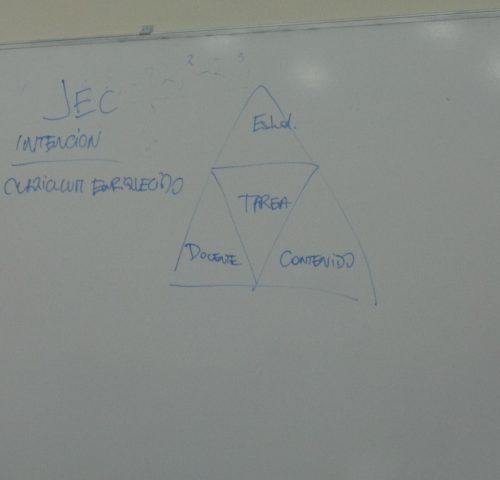 JEC
INTENCIÓN
CURRICULUM ENRIQUECIDO
2 3
Estud.
TAREA
DOCENTE
CONTENIDO